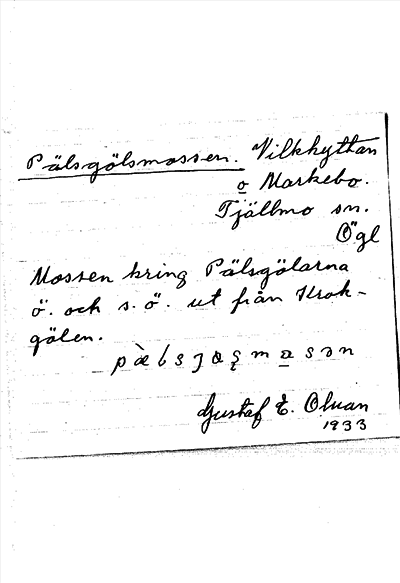 Pälsgölsmossen. Vilkhyttan
o Markebo.
Tjällmo sn.
Ögl
Mossen kring Pälsgölarna
ö. och s.ö. ut från Krok-
gölen.
Gustaf E.
1933